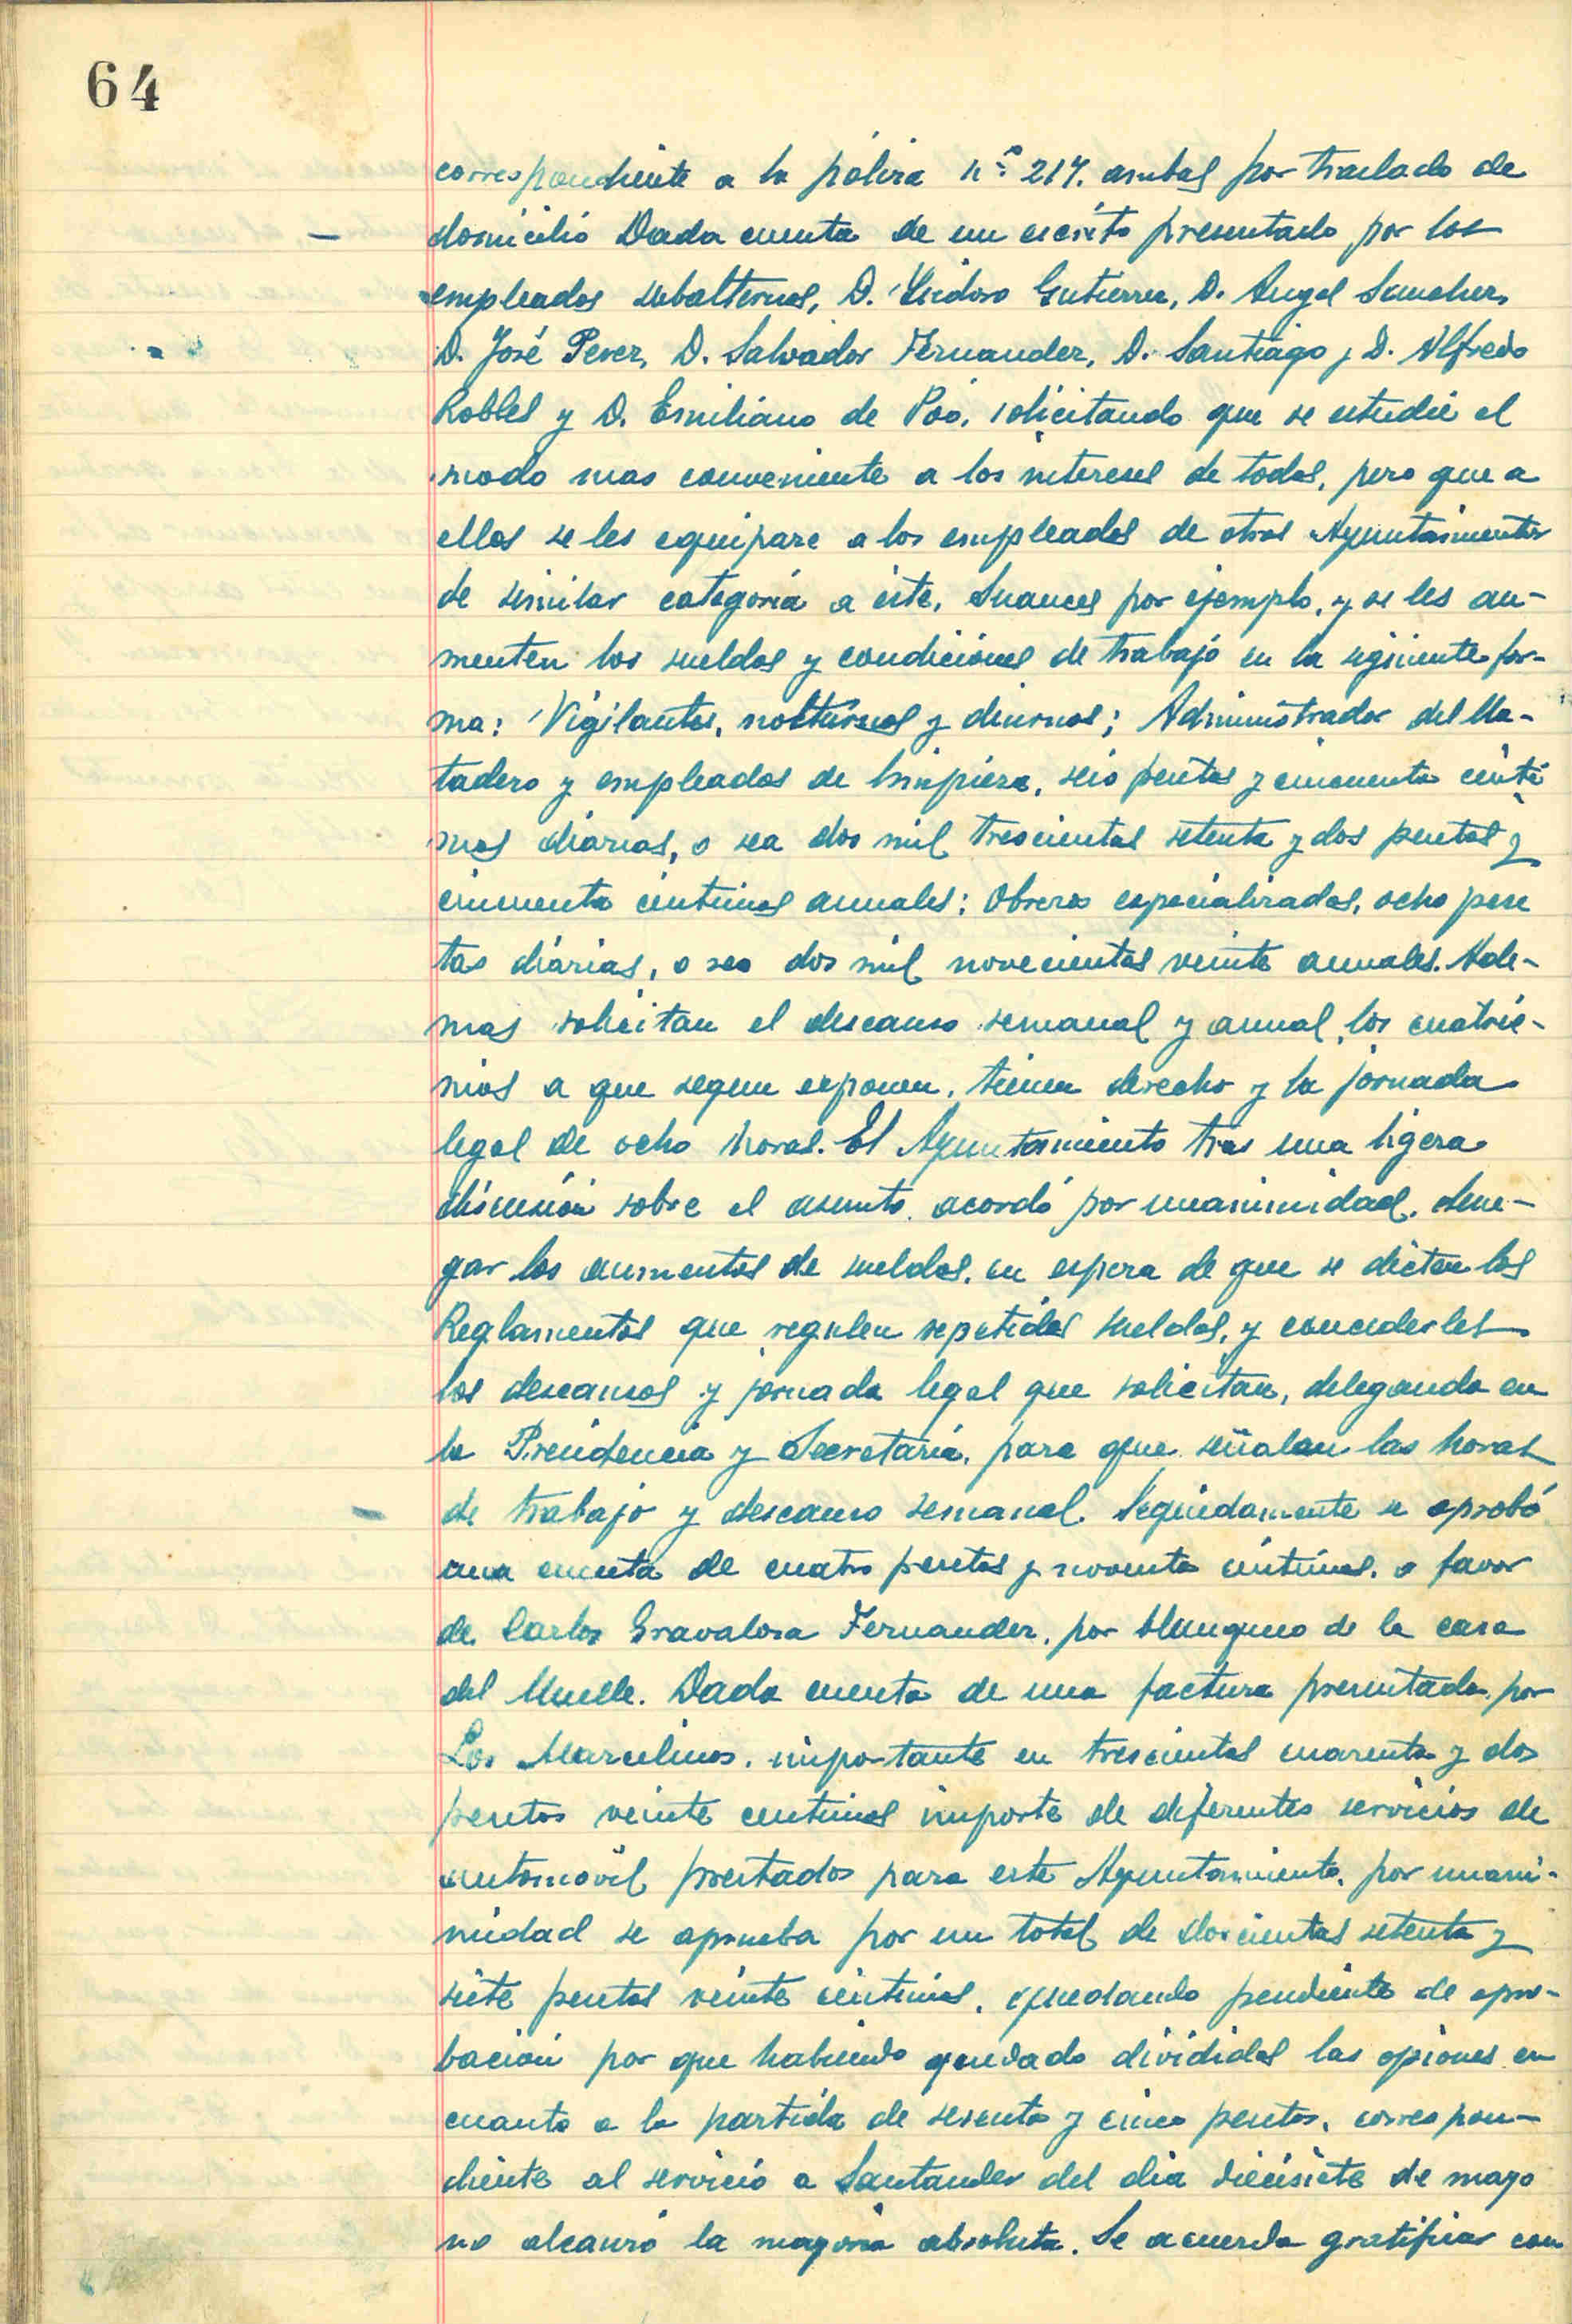 64
correspondiente a la póliza nº 217. ambas por traslado de
domicilio Dada cuenta de un escrito presentado por los
empleados subalternos, D. Isidoro Gutierrez, D. Angel Sanchez,
D. José Perez, D. Salvador Fernandez, D. Santiago y D. Alfredo
Robles y D. Emiliano de Poó, solicitando que se estudie el
modo mas conveniente a los intereses de todos, pero que a
ellos se les equipare a los empleados de otros Ayuntamientos
de similar categoria a éste, Suances por ejemplo, y se les au-
menten los sueldos y condiciones de trabajo en la siguiente for-
ma: Vigilantes, nocturnos y diurnos; Administrador del Ma-
tadero y empleados de limpieza, seis pesetas y cincuenta centi
mos diarios, o sea dos mil trescientas setenta y dos pesetas y
cincuenta centimos anuales; Obreros especializados, ocho pese
tas diarias, o sea dos mil novecientas veinte anuales. Ade-
mas solicitan el descanso semanal y anual, los cuatrie-
nios a que segun exponen, tienen derecho y la jornada
legal de ocho horas. El Ayuntamiento tras una ligera
discusión sobre el asunto, acordó por unanimidad, dene-
gar los aumentos de sueldos, en espera de que se dicten los
Reglamentos que regulen repetidos sueldos, y concederles
los descansos y jornada legal que solicitan, delegando en
la Presidencia y Secretaria, para que señalen las horas
de trabajo y descanso semanal. Seguidamente se aprobó
una cuenta de cuatro pesetas y noventa centimos, a favor
de Carlos Gravalosa Fernandez, por blanqueo de la casa
del Muelle. Dada cuenta de una factura presentada por
Los Marcelinos, importante en trescientas cuarenta y dos
pesetas veinte centimos importe de diferentes servicios de
automovil prestados para este Ayuntamiento, por unani-
midad se aprueba por un total de doscientas setenta y
siete pesetas veinte centimos, quedando pendiente de apro-
bación por que habiendo quedado divididas las opiones en
cuanto a la partida de sesenta y cinco pesetas, correspon-
diente al servicio a Santander del dia diecisiete de mayo
no alcanzó la mayoria absoluta. Se acuerda gratificar con